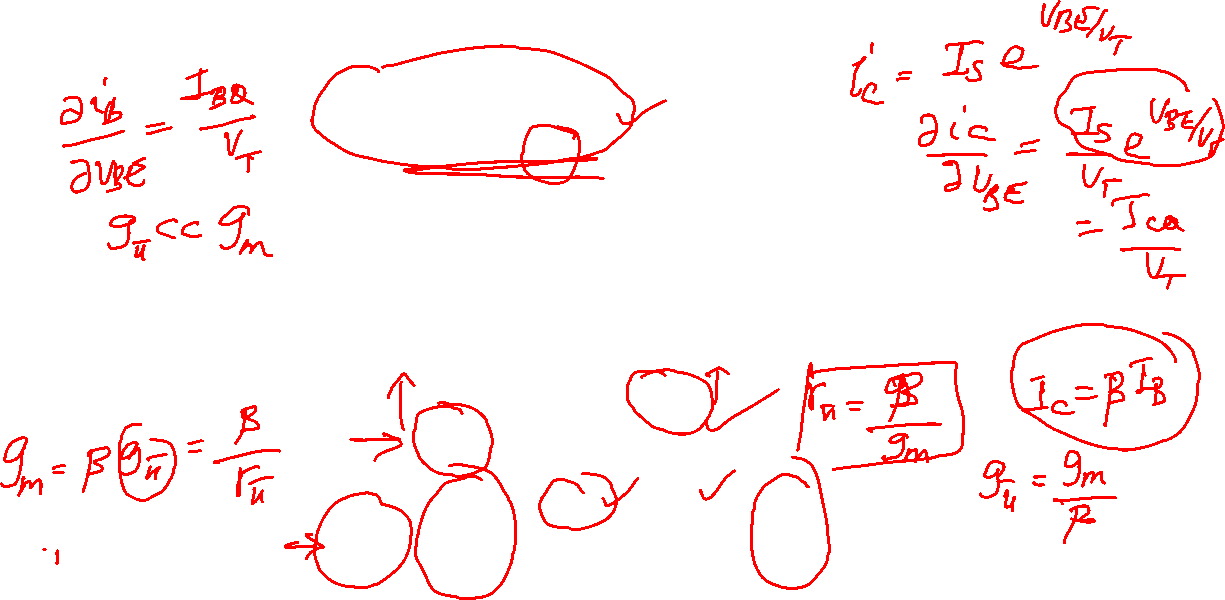 ∂i_B/∂V_BE = I_BQ/V_T
g_π << g_m
i_C = I_S e^(V_BE/V_T)
∂i_C/∂V_BE = I_S e^(V_BE/V_T)/V_T
= I_CQ/V_T
g_m = β g_π = β/r_π
r_π = β/g_m
I_C = β I_B
g_π = g_m/β